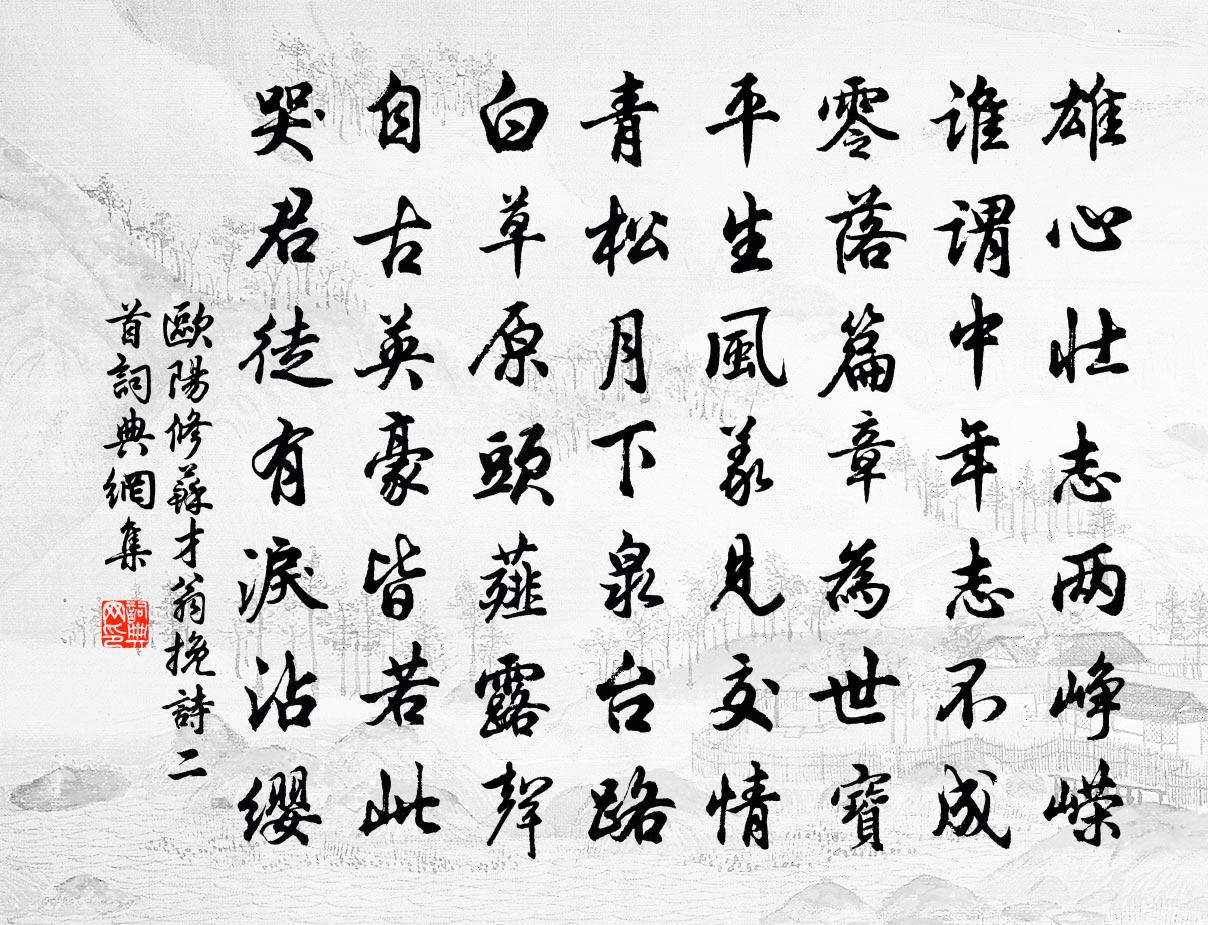 雄心壮志两峥嵘
谁谓中年志不成
零落篇章為世寶
平生風義見交情
青松月下泉台路
白草原頭薤露聲
自古英豪皆若此
哭君徒有淚沾纓
歐陽修蘇才翁挽詩二
首詞典網集
詞典网印